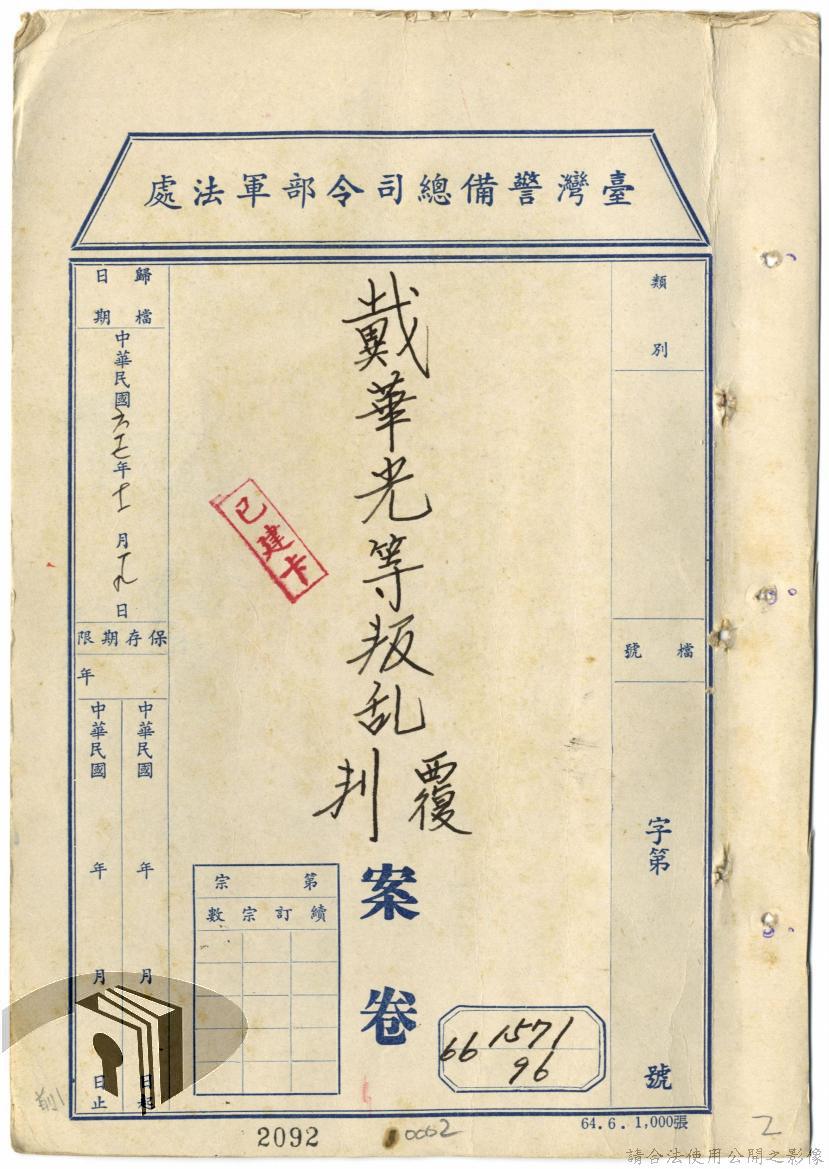 臺灣警備總司令部軍法處
類別
檔號
字第
號
戴華光等叛乱
覆判
案卷
已建卡
歸檔日期
中華民國六七年十一月十九日
保存期限
年
中華民國 年 月 日起
中華民國 年 月 日止
第宗
續訂宗數
66 1571
96
64.6.1,000張
2092
0062
2
請合法使用公開之影像